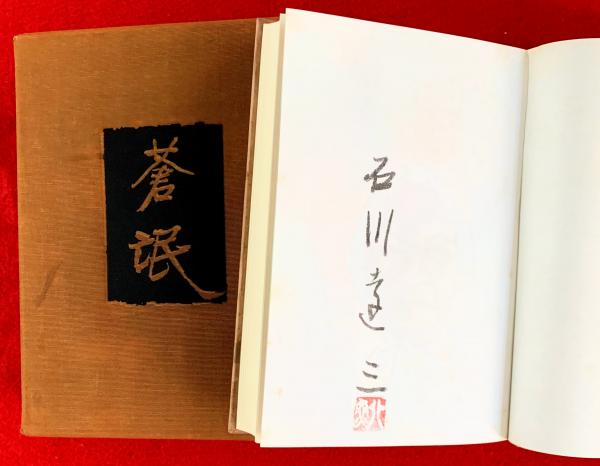 蒼氓
石川達三